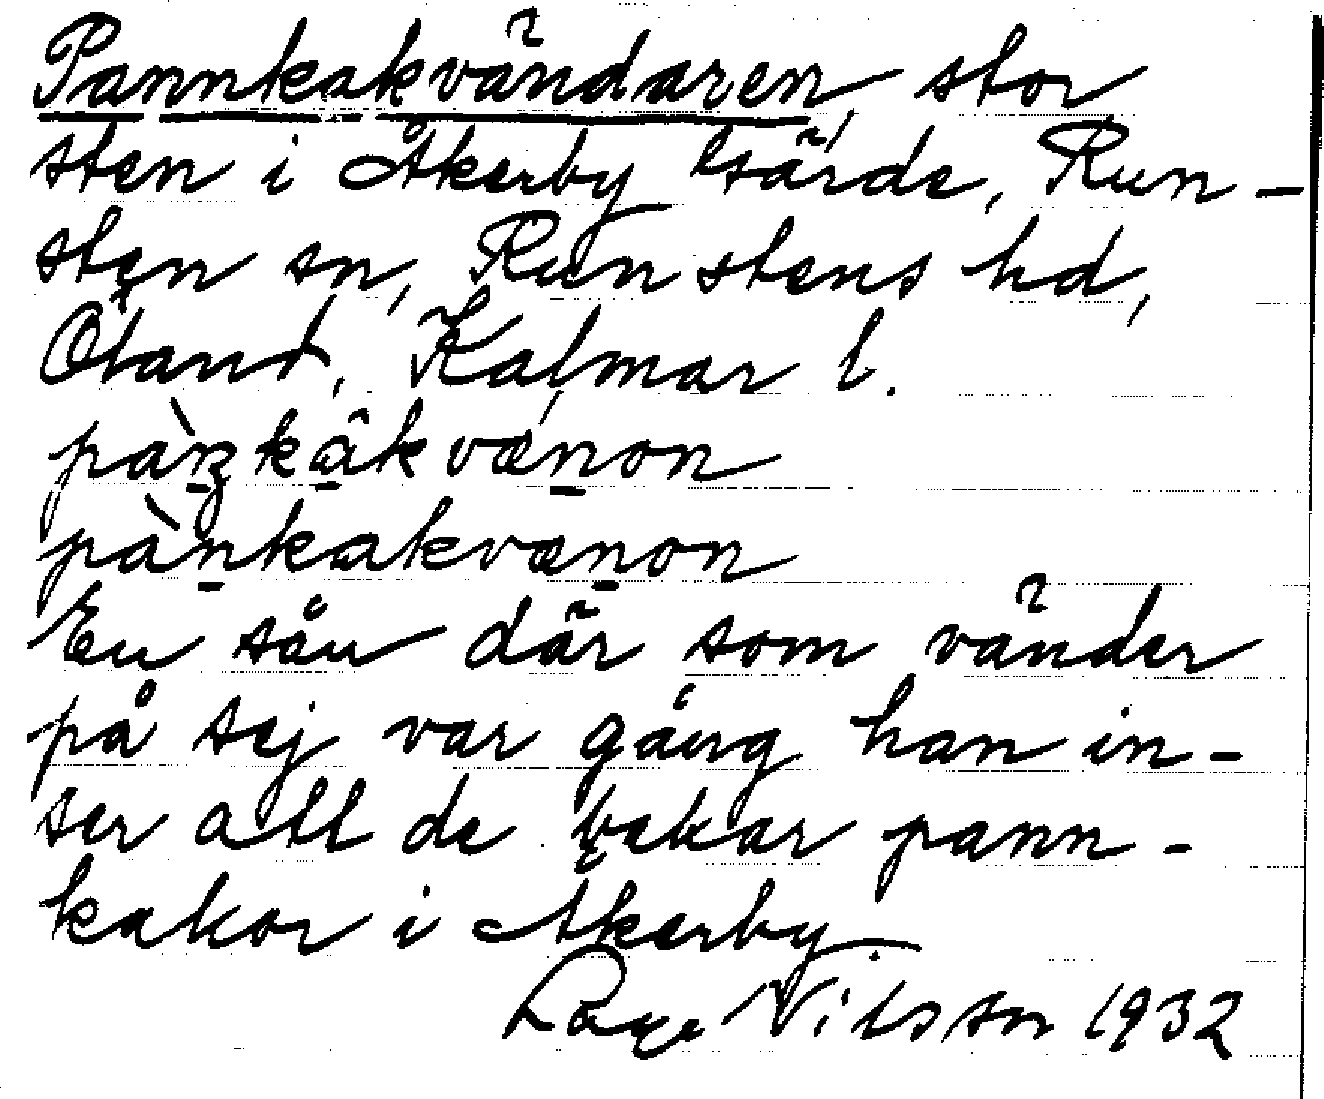 Pannkakvändaren, stor
sten i Åkerby gärde, Run-
sten sn, Runstens hd,
Öland, Kalmar l.
En sån där som vänder
på sej var gång han in-
ser att de bakar pann-
kakor i Åkerby
Nilsson 1932